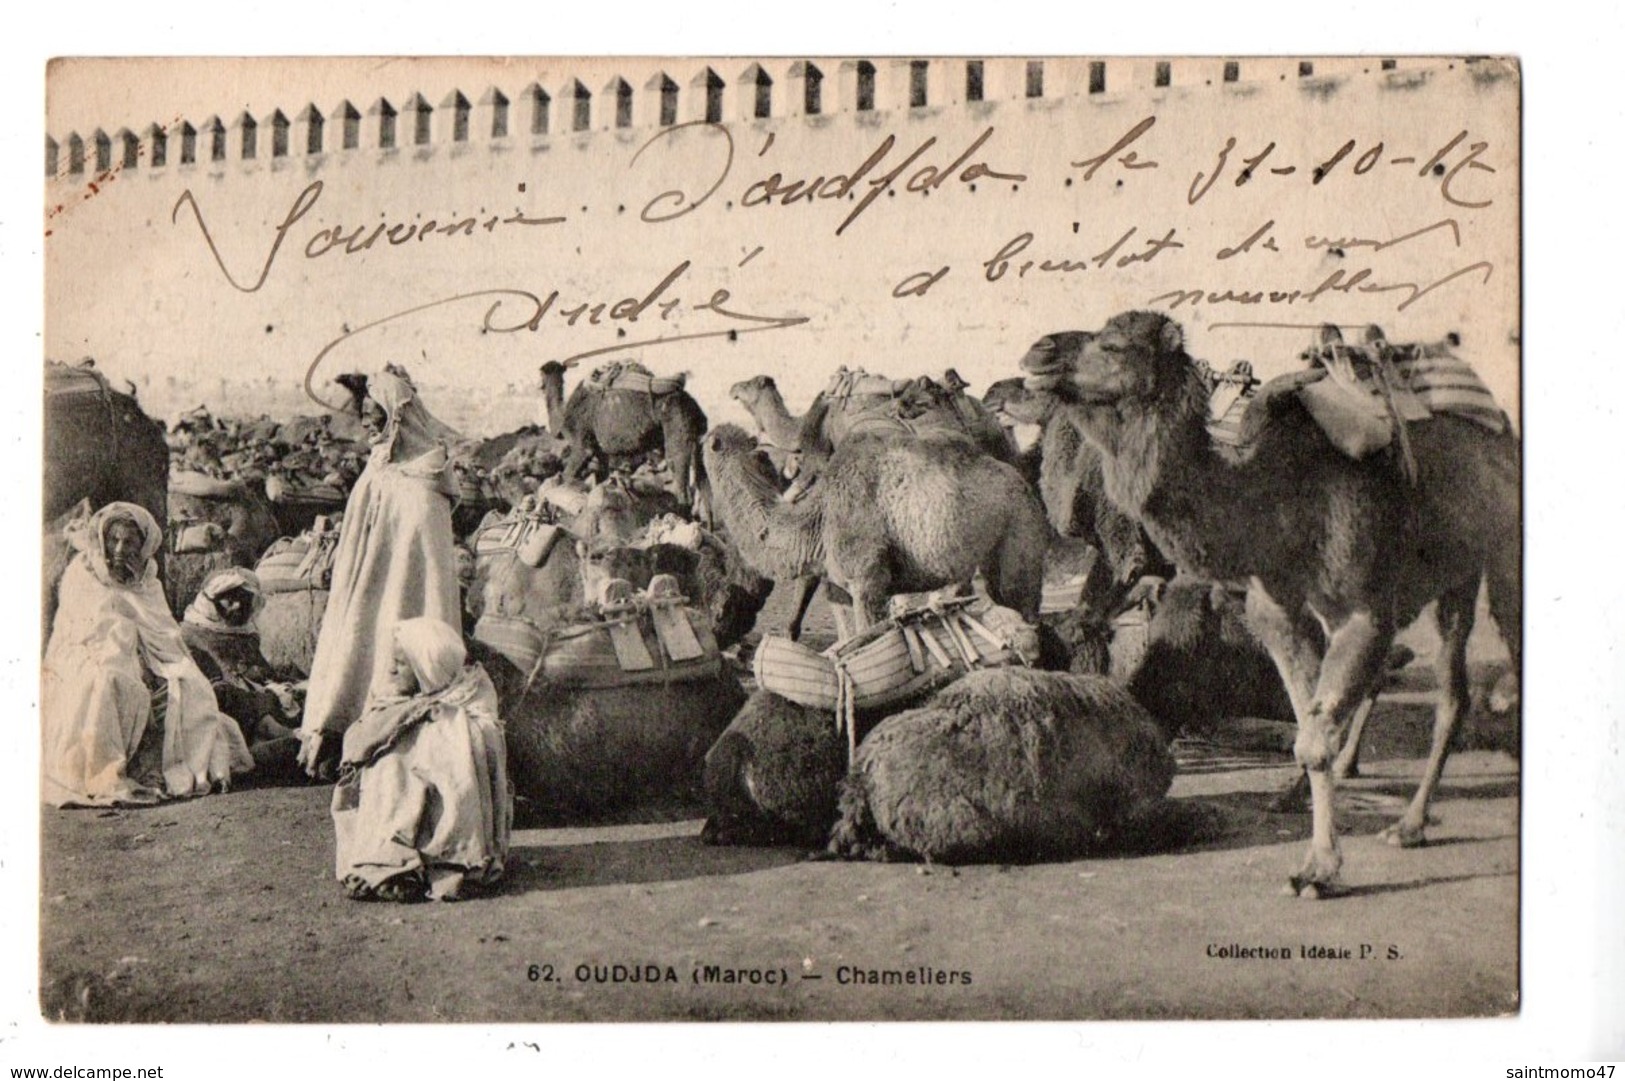 Souvenir d'oudjda le 31-10-12
a bientot de vos
André
nouvelles
Collection Idéale P. S.
62. OUDJDA (Maroc) — Chameliers
www.delcampe.net
saintmomo47